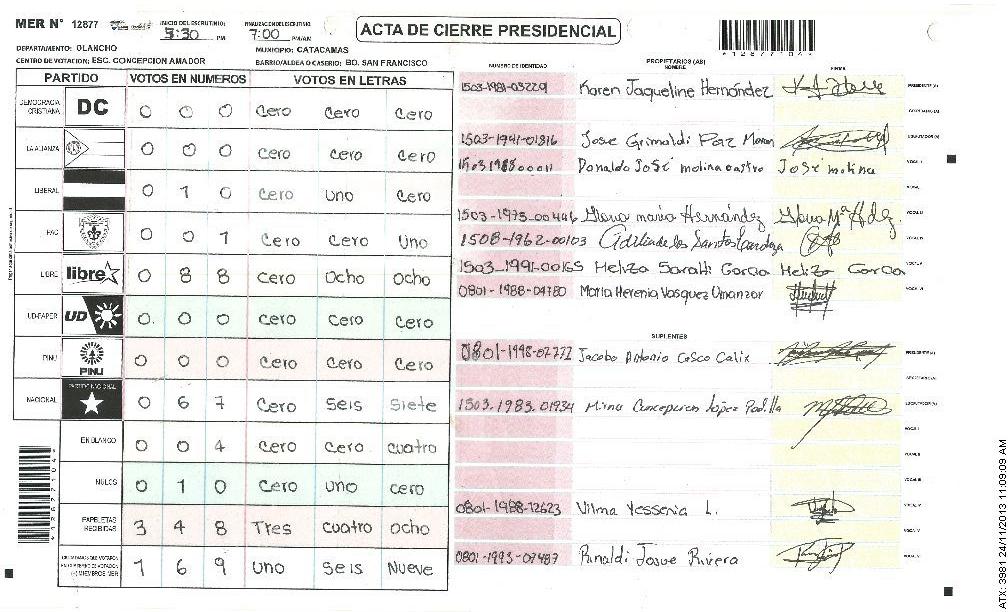 MER N° 12877
INICIO DEL ESCRUTINIO: 5:30 PM
FINALIZACION DEL ESCRUTINIO: 7:00 PM/AM
ACTA DE CIERRE PRESIDENCIAL
*12877104*
DEPARTAMENTO: OLANCHO
MUNICIPIO: CATACAMAS
CENTRO DE VOTACION: ESC. CONCEPCION AMADOR
BARRIO/ALDEA O CASERIO: BO. SAN FRANCISCO
PARTIDO VOTOS EN NUMEROS VOTOS EN LETRAS
DEMOCRACIA CRISTIANA DC 0 0 0 Cero Cero Cero
LA ALIANZA 0 0 0 Cero Cero Cero
LIBERAL 0 1 0 Cero Uno Cero
PAC 0 0 1 Cero Cero Uno
LIBRE libre 0 8 8 Cero Ocho Ocho
UD-FAPER UD 0 0 0 Cero Cero Cero
PINU PINU 0 0 0 Cero Cero Cero
NACIONAL PARTIDO NACIONAL 0 6 7 Cero Seis Siete
EN BLANCO 0 0 4 Cero Cero cuatro
NULOS 0 1 0 Cero uno cero
PAPELETAS RECIBIDAS 3 4 8 Tres cuatro ocho
CIUDADANOS QUE VOTARON (+) MIEMBROS MER 1 6 9 uno Seis Nueve
NUMERO DE IDENTIDAD PROPIETARIOS (AS) NOMBRE FIRMA
1503-1981-03229 Karen Jaqueline Hernández PRESIDENTE (A)
SECRETARIO (A)
1503-1941-01816 Jose Grimaldi Paz ESCRUTADOR (A)
Donaldo José molina castro José molina VOCAL I
VOCAL II
1503-1973-00446 Gloria maria Hernández Gloria Mª Hdez. VOCAL III
1508-1962-00103 VOCAL IV
1503-1991-00165 Meliza Saratti Garcia Meliza Garcia VOCAL V
0801-1988-04780 Maria Herenia Vasquez Umanzor VOCAL VI
SUPLENTES
0801-1998-07772 Jacobo Antonio Cosco Calix PRESIDENTE (A)
SECRETARIO (A)
1503-1983-01934 Mirna Concepcion López Padilla ESCRUTADOR (A)
VOCAL I
VOCAL II
VOCAL III
0801-1988-12623 Vilma Yessenia L. VOCAL IV
VOCAL V
0801-1993-07487 Rinaldi Josue Rivera VOCAL VI
*12877104*
ATX: 3981 24/11/2013 11:09:09 AM